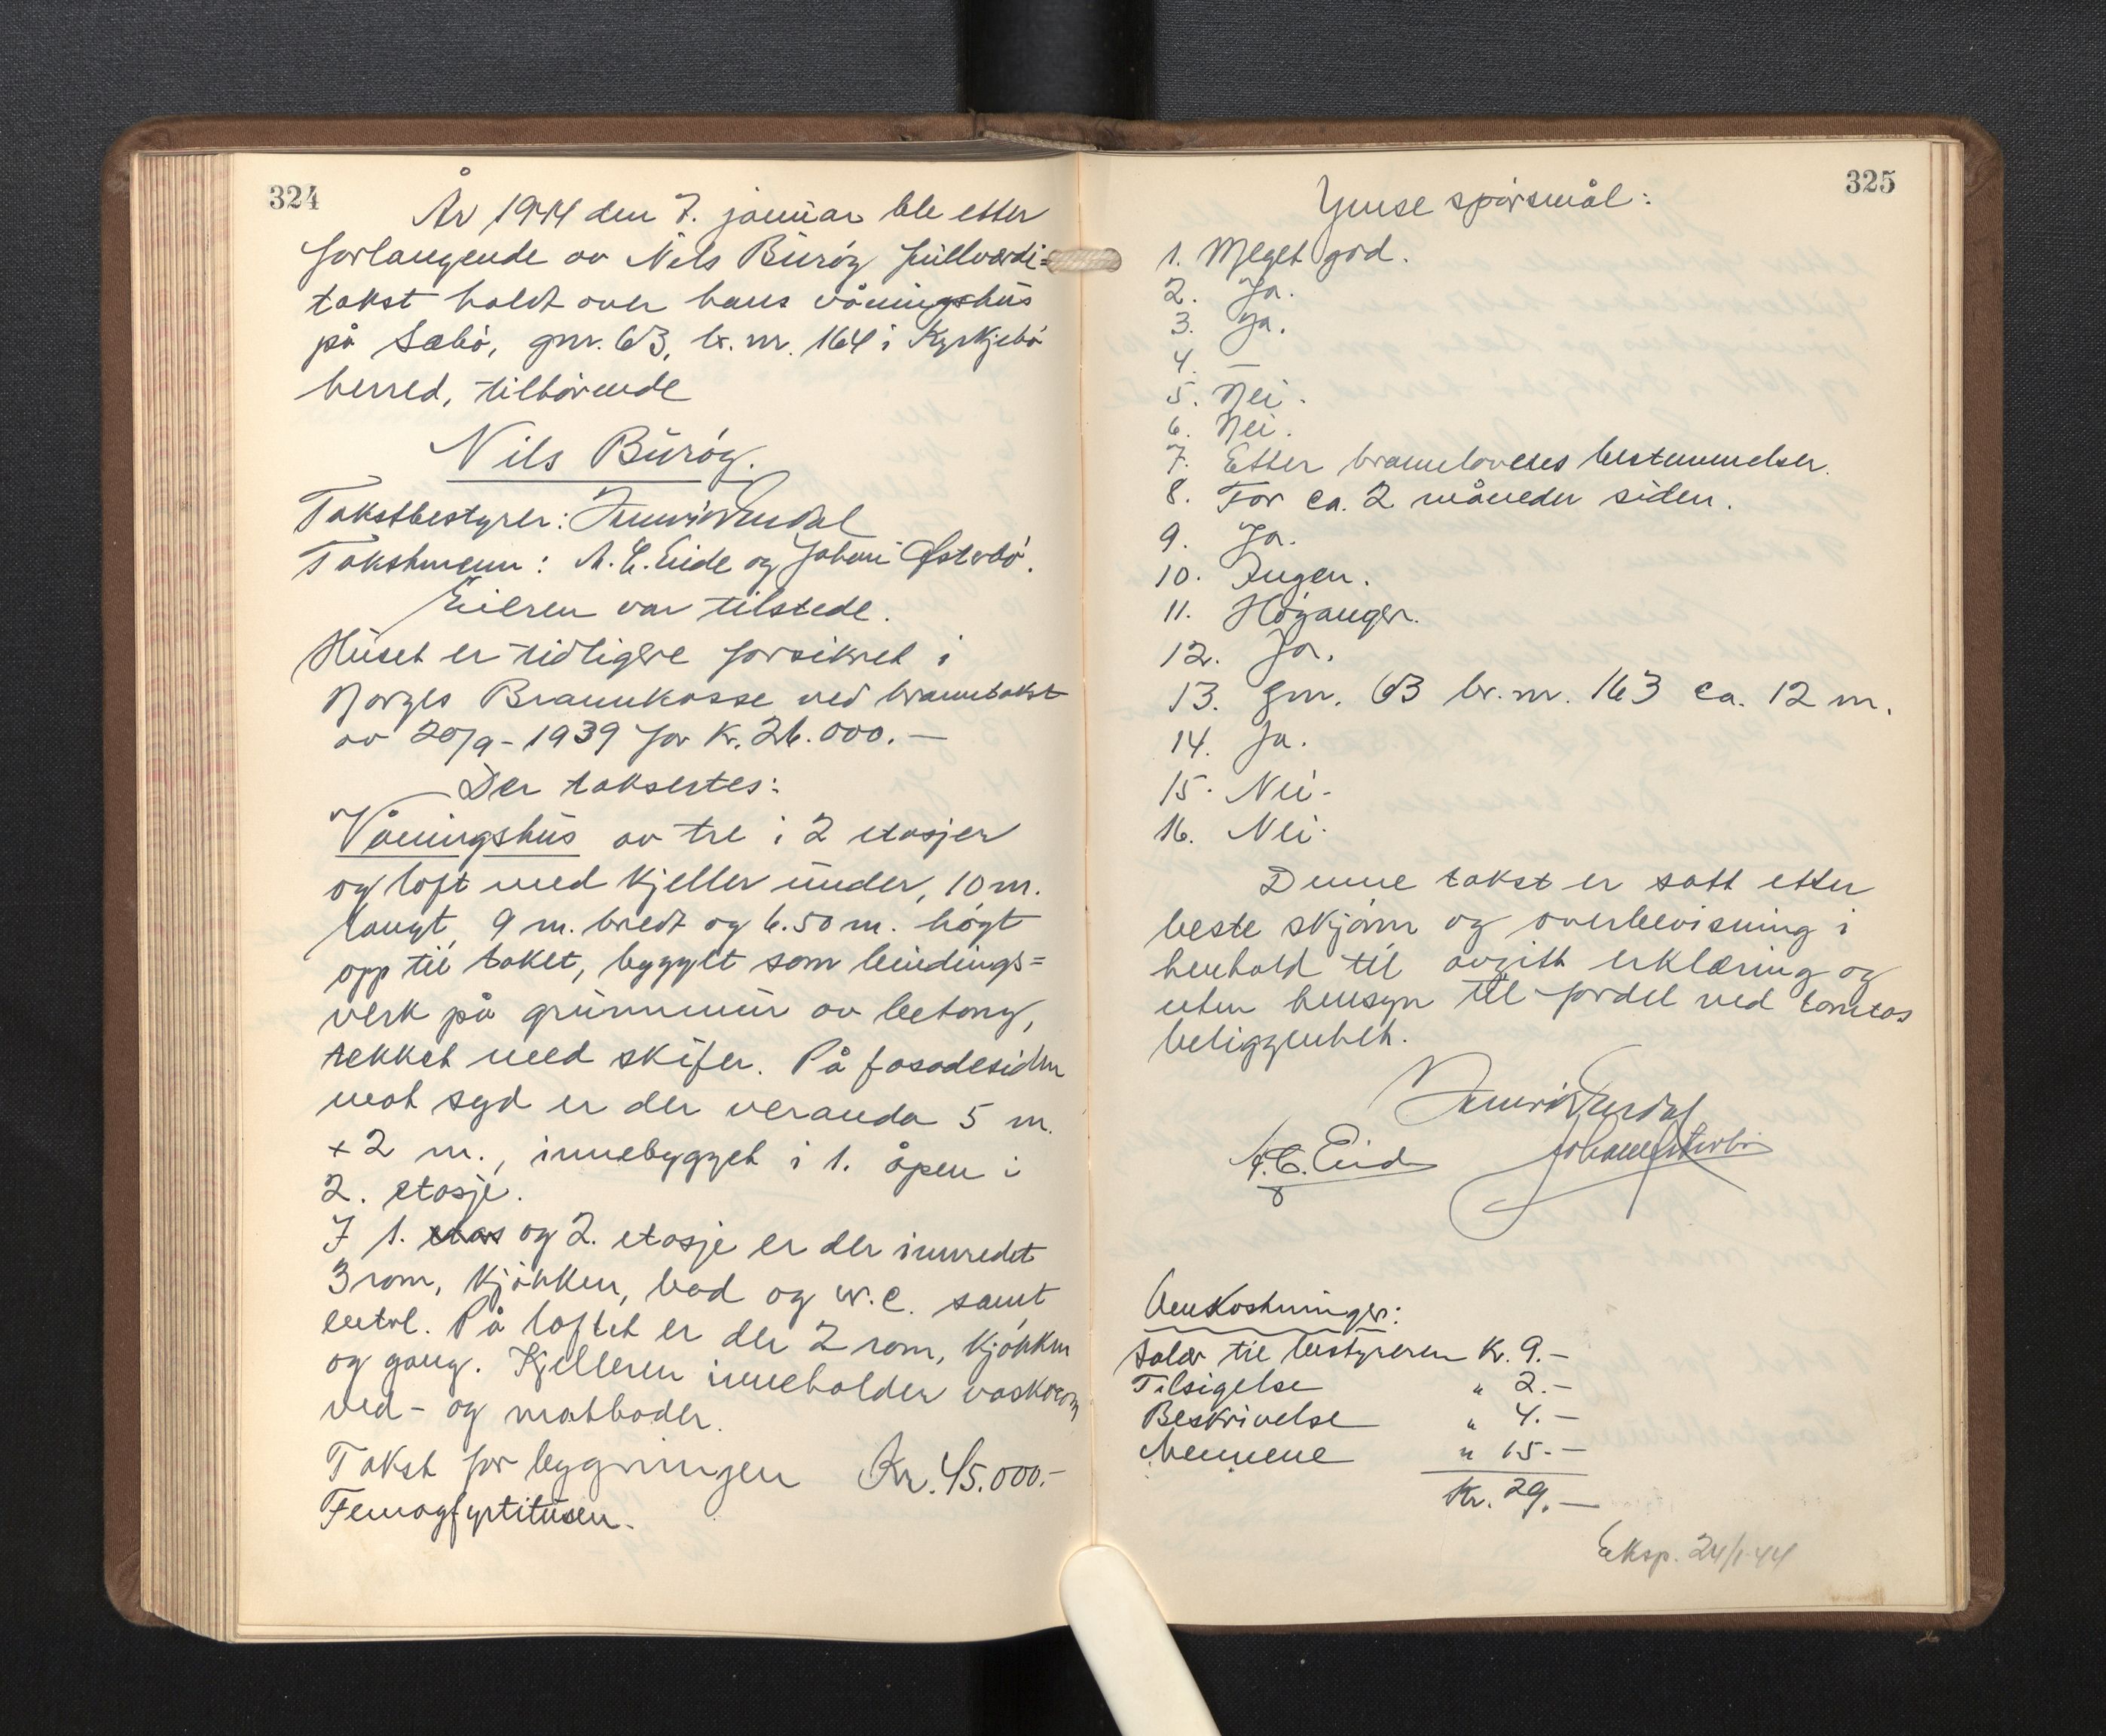 324
År 1944 den 7. januar ble etter
forlangende av Nils Burøy fullverdi=
takst holdt over hans våningshus
på Sæbö, gnr. 63, br. nr. 164 i Kyrkjebö
herred, tilhörende
Nils Burøy.
Takstbestyrer:
Takstmenn: A. E. Eide og Johan Østerbö.
Eieren var tilstede.
Huset er tidligere forsikret i
Norges Brannkasse ved branntakst
av 20/9-1939 for kr. 26.000.—
Der taksertes:
Våningshus av tre i 2 etasjer
og loft med kjeller under, 10 m.
langt, 9 m. bredt og 6.50 m. högt
opp til taket, bygget som bindings=
verk på grunnmur av betong,
tekket med skifer. På fasadesiden
mot syd er der veranda 5 m.
x 2 m., innebygget i 1. åpen i
2. etasje.
I 1. etas og 2. etasje er der innredet
3 rom, kjökken, bad og w.c. samt
entré. På loftet er der 2 rom, kjökken
og gang. Kjelleren inneholder vaskerom,
ved- og matboder.
Takst for bygningen Kr. 45.000.-
Femogfyrtitusen.
325
Ymse spörsmål:
1. Meget god.
2. Ja.
3. Ja.
4. —
5. Nei.
6. Nei.
7. Etter brannlovens bestemmelser.
8. For ca. 2 måneder siden.
9. Ja.
10. Ingen.
11. Höyanger.
12. Ja.
13. gnr. 63 br. nr. 163 ca. 12 m.
14. Ja.
15. Nei.
16. Nei.
Denne takst er satt etter
beste skjönn og overbevisning i
henhold til avgitt erklæring og
uten hensyn til fordel ved tomtas
beliggenhet.
A. E. Eide Johan Østerbö
Omkostninger:
Salær til bestyreren Kr. 9.—
Tilsigelse " 2.—
Beskrivelse " 4.—
Mennene " 15.—
Kr. 29.—
Eksp. 24/1-44